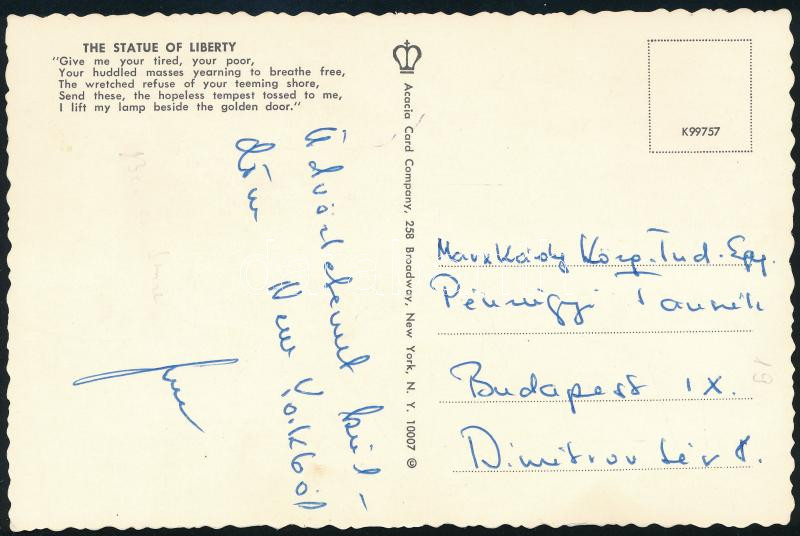 THE STATUE OF LIBERTY
"Give me your tired, your poor,
Your huddled masses yearning to breathe free,
The wretched refuse of your teeming shore,
Send these, the hopeless tempest tossed to me,
I lift my lamp beside the golden door."
Acacia Card Company, 258 Broadway, New York, N. Y. 10007 ©
K99757
Üdvözletemet kül-
döm New Yorkból
Marx Károly Közg. Tud. Egy.
Pénzügyi Tanszék
Budapest IX.
Dimitrov tér 8.